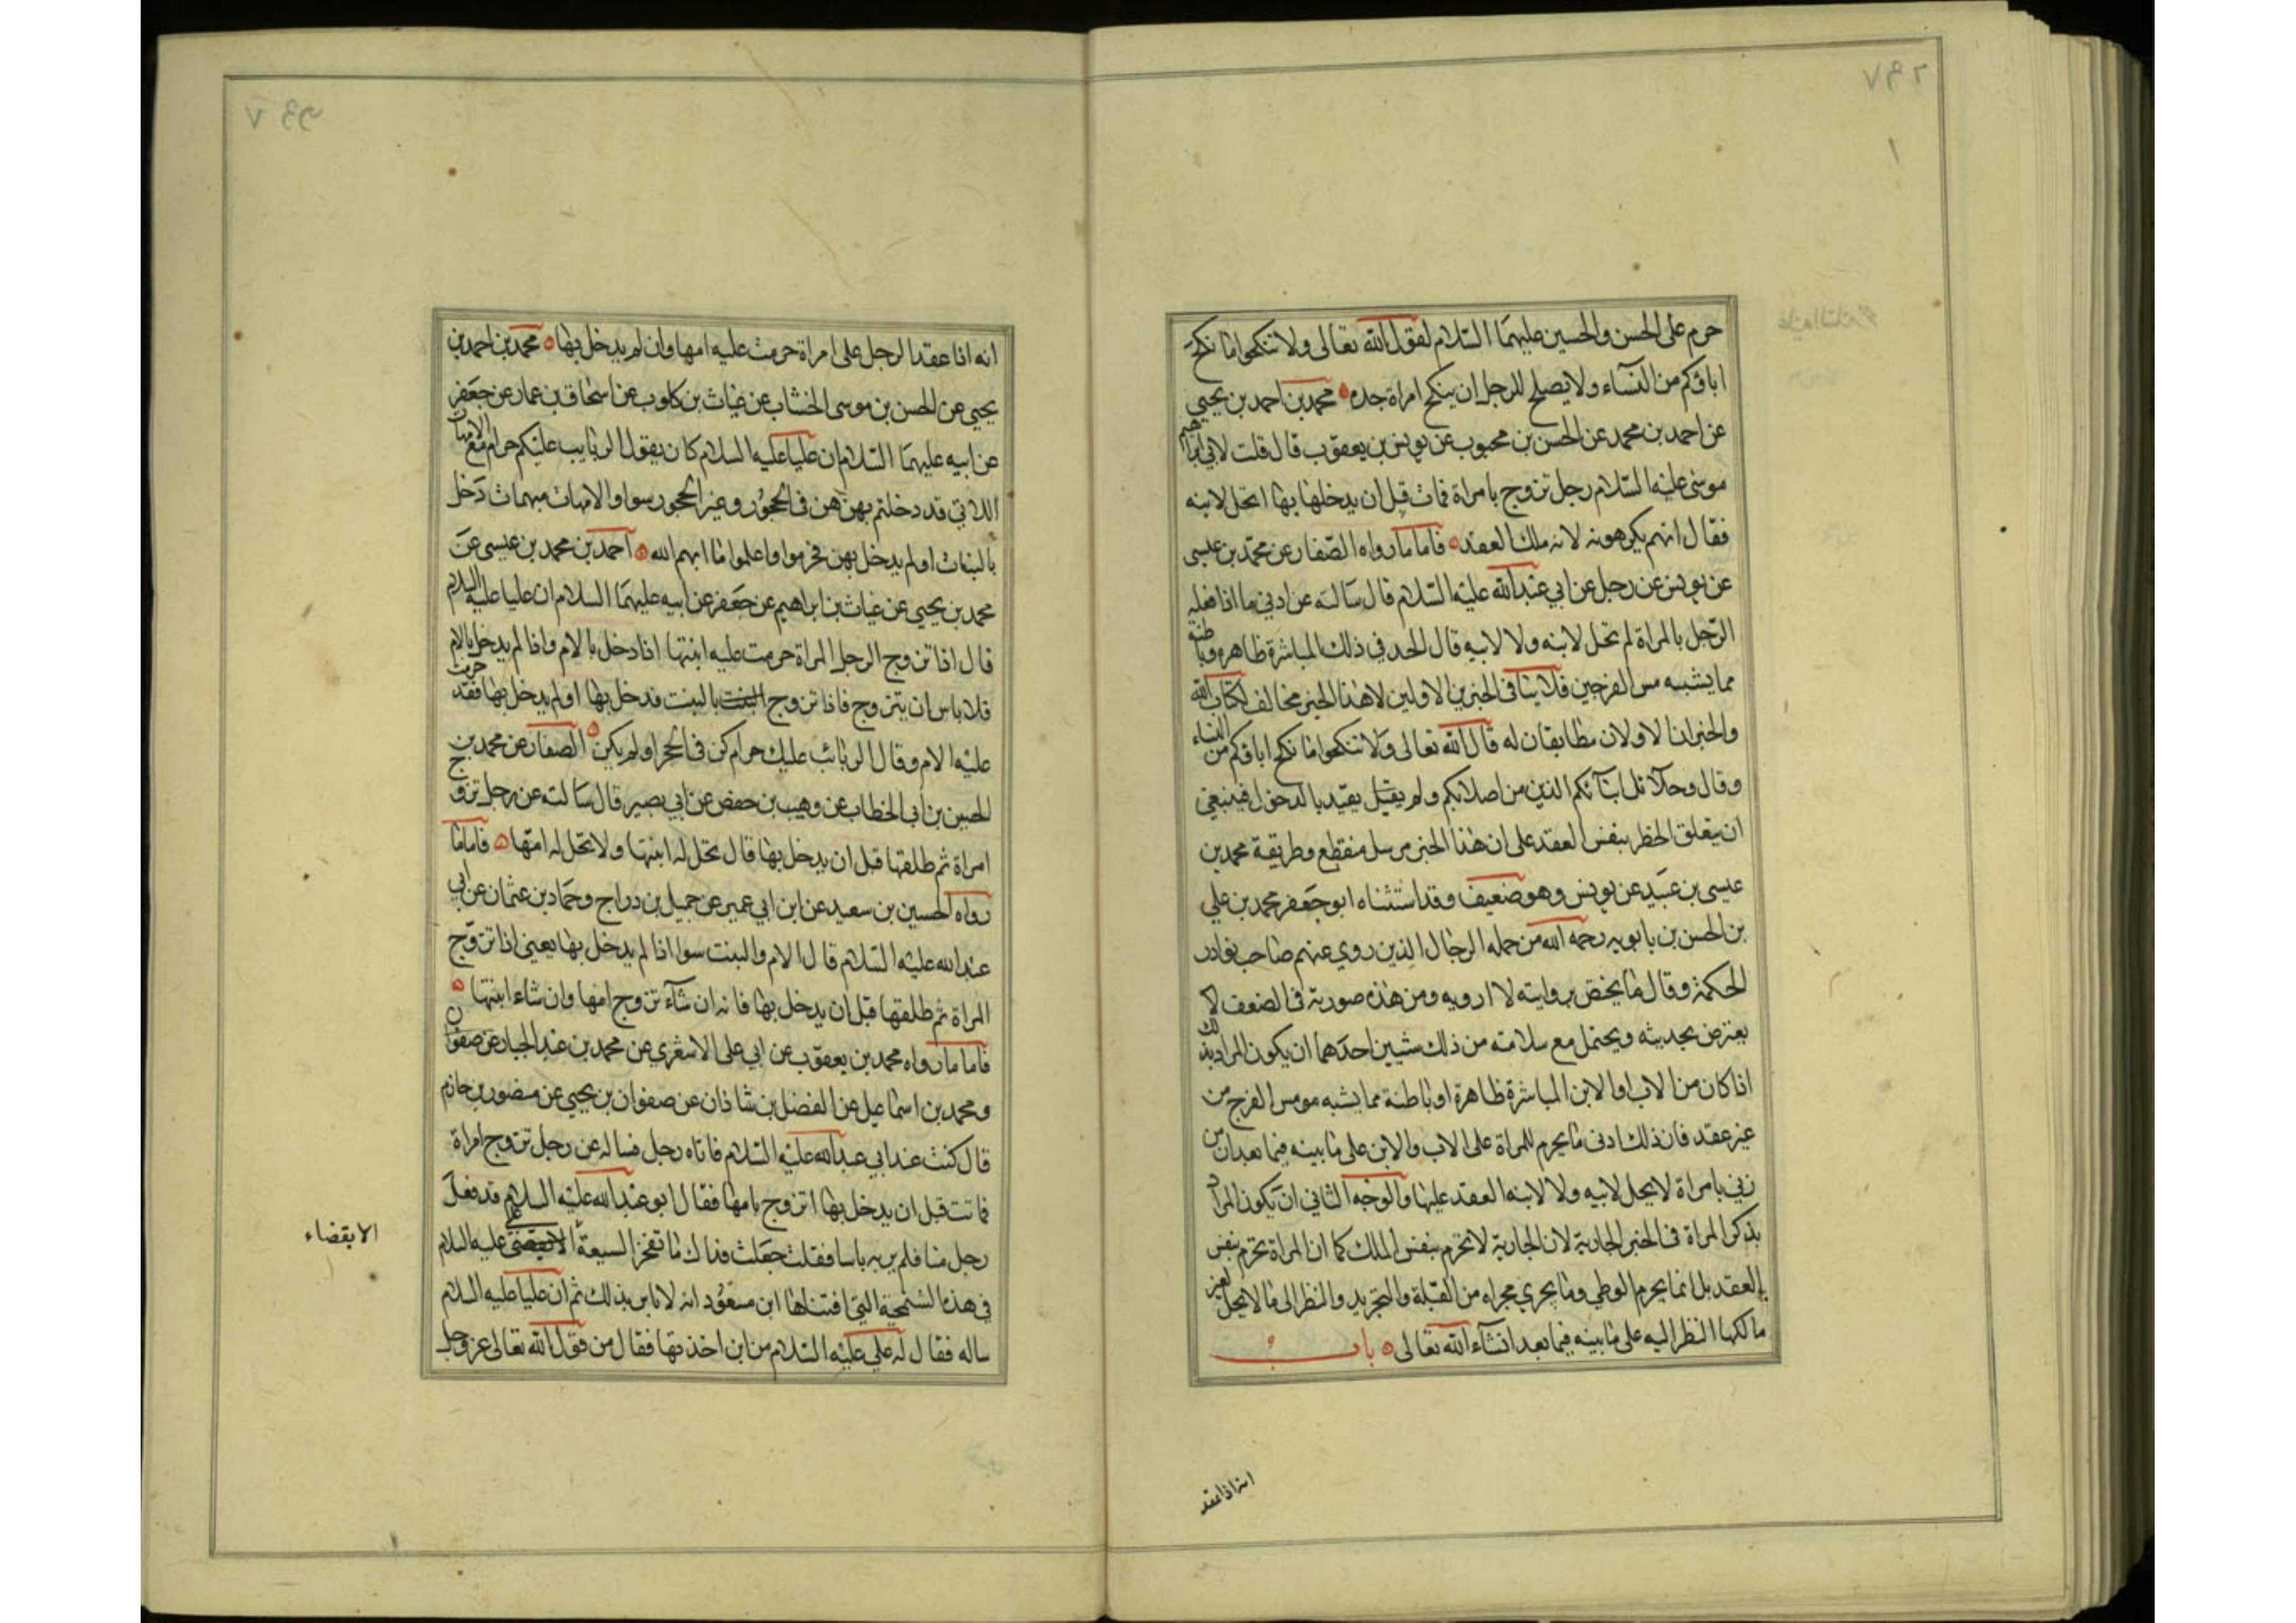 حرم على الحسن والحسين عليهما السلام لقول الله تعالى ولا تنكحوا ما نكح
اباؤكم من النساء ولا يصلح للرجل ان ينكح امراة جده محمد بن احمد بن يحيى
عن احمد بن محمد عن الحسن بن محبوب عن يونس بن يعقوب قال قلت لابي ابراهيم
موسى عليه السلام رجل تزوج بامراة فمات قبل ان يدخلها بها اتحل لابنه
فقال انهم يكرهونه لانه ملك العقد فاما ما رواه الصفار عن محمد بن عيسى
عن يونس عن رجل عن ابي عبد الله عليه السلام قال سالته عن ادنى ما اذا فعله
الرجل بالمراة لم تحل لابنه ولا لابيه قال الحد في ذلك المباشرة ظاهره وباطنه
مما يشبه مس الفرجين فلا ينافي الخبرين الاولين لان هذا الخبر مخالف لكتاب الله
والخبران الاولان مطابقان له قال الله تعالى ولا تنكحوا ما نكح اباؤكم من النساء
وقال وحلائل ابنائكم الذين من اصلابكم ولم يقيد بالدخول فينبغي
ان يتعلق الحظر بنفس العقد على ان هذا الخبر مرسل منقطع وطريقة محمد بن
عيسى بن عبيد عن يونس وهو ضعيف وقد استثناه ابو جعفر محمد بن علي
بن الحسن بن بابويه رحمه الله من جمله الرجال الذين روي عنهم صاحب نوادر
الحكمة وقال ما يختص بروايته لا ارويه ومن هذه صورته في الضعف لا
يعترض بحديثه ويحتمل مع سلامته من ذلك شيين احدهما ان يكون المراد بذلك
اذا كان من الاب او الابن المباشرة ظاهرة او باطنة مما يشبه مومس الفرج من
غير عقد فان ذلك ادنى ما يحرم للمراة على الاب والابن على ما بينه فيما بعد ان من
زنى بامراة لا يحل لابيه ولا لابنه العقد عليها والوجه الثاني ان يكون المراد
بذكر المراة في الخبر الجارية لان الجارية لا تحرم بنفس الملك كما ان المراة تحرم بنفس
العقد بل انما يحرم الوطي وما يجري مجراه من القبلة والتجريد والنظر الى ما لا يحل لغير
مالكها النظر اليه على ما بينه فيما بعد انشاء الله تعالى باب
انه اذا عقد
انه اذا عقد الرجل على امراة حرمت عليه امها وان لم يدخل بها محمد بن احمد بن
يحيى عن الحسن بن موسى الخشاب عن غياث بن كلوب عن اسحاق بن عمار عن جعفر
عن ابيه عليهما السلام ان عليا عليه السلام كان يقول الربايب عليكم حرام مع الامهات
اللاتي قد دخلتم بهن هن في الحجور وغير الحجور سوا والامهات مبهمات دخل
بالبنات او لم يدخل بهن فحرموا واعلموا ما ابهم الله احمد بن محمد بن عيسى عن
محمد بن يحيى عن غياث بن ابراهيم عن جعفر عن ابيه عليهما السلام ان عليا عليه السلام
قال اذا تزوج الرجل المراة حرمت عليه ابنتها اذا دخل بالام واذا لم يدخل بالام
فلا باس ان يتزوج فاذا تزوج البنت بالبنت فدخل بها او لم يدخل بها فقد حرمت
عليه الام وقال الربائب عليك حرام كن في الحجر او لم يكن الصفار عن محمد بن
الحسين بن ابي الخطاب عن وهيب بن حفص عن ابي بصير قال سالته عن رجل تزوج
امراة ثم طلقها قبل ان يدخل بها قال تحل له ابنتها ولا تحل له امها فاما ما
رواه الحسين بن سعيد عن ابن ابي عمير عن جميل بن دراج وحماد بن عثمان عن ابي
عبد الله عليه السلام قال الام والبنت سوا اذا لم يدخل بها يعني اذا تزوج
المراة ثم طلقها قبل ان يدخل بها فانه ان شاء تزوج امها وان شاء ابنتها
فاما ما رواه محمد بن يعقوب عن ابي على الاشعري عن محمد بن عبد الجبار عن صفوان
ومحمد بن اسماعيل عن الفضل بن شاذان عن صفوان بن يحيى عن منصور بن حازم
قال كنت عند ابي عبد الله عليه السلام فاتاه رجل فساله عن رجل تزوج امراة
فماتت قبل ان يدخل بها اتزوج بامها فقال ابو عبد الله عليه السلام قد فعله
رجل منا فلم ير به باسا فقلت جعلت فداك ما تفخر السيعة عليه السلام
في هذه الشمخية التي افتناها ابن مسعود انه لا باس بذلك ثم ان عليا عليه السلام
ساله فقال له علي عليه السلام من اين اخذتها فقال من قول الله تعالى عز وجل
الابقضاء